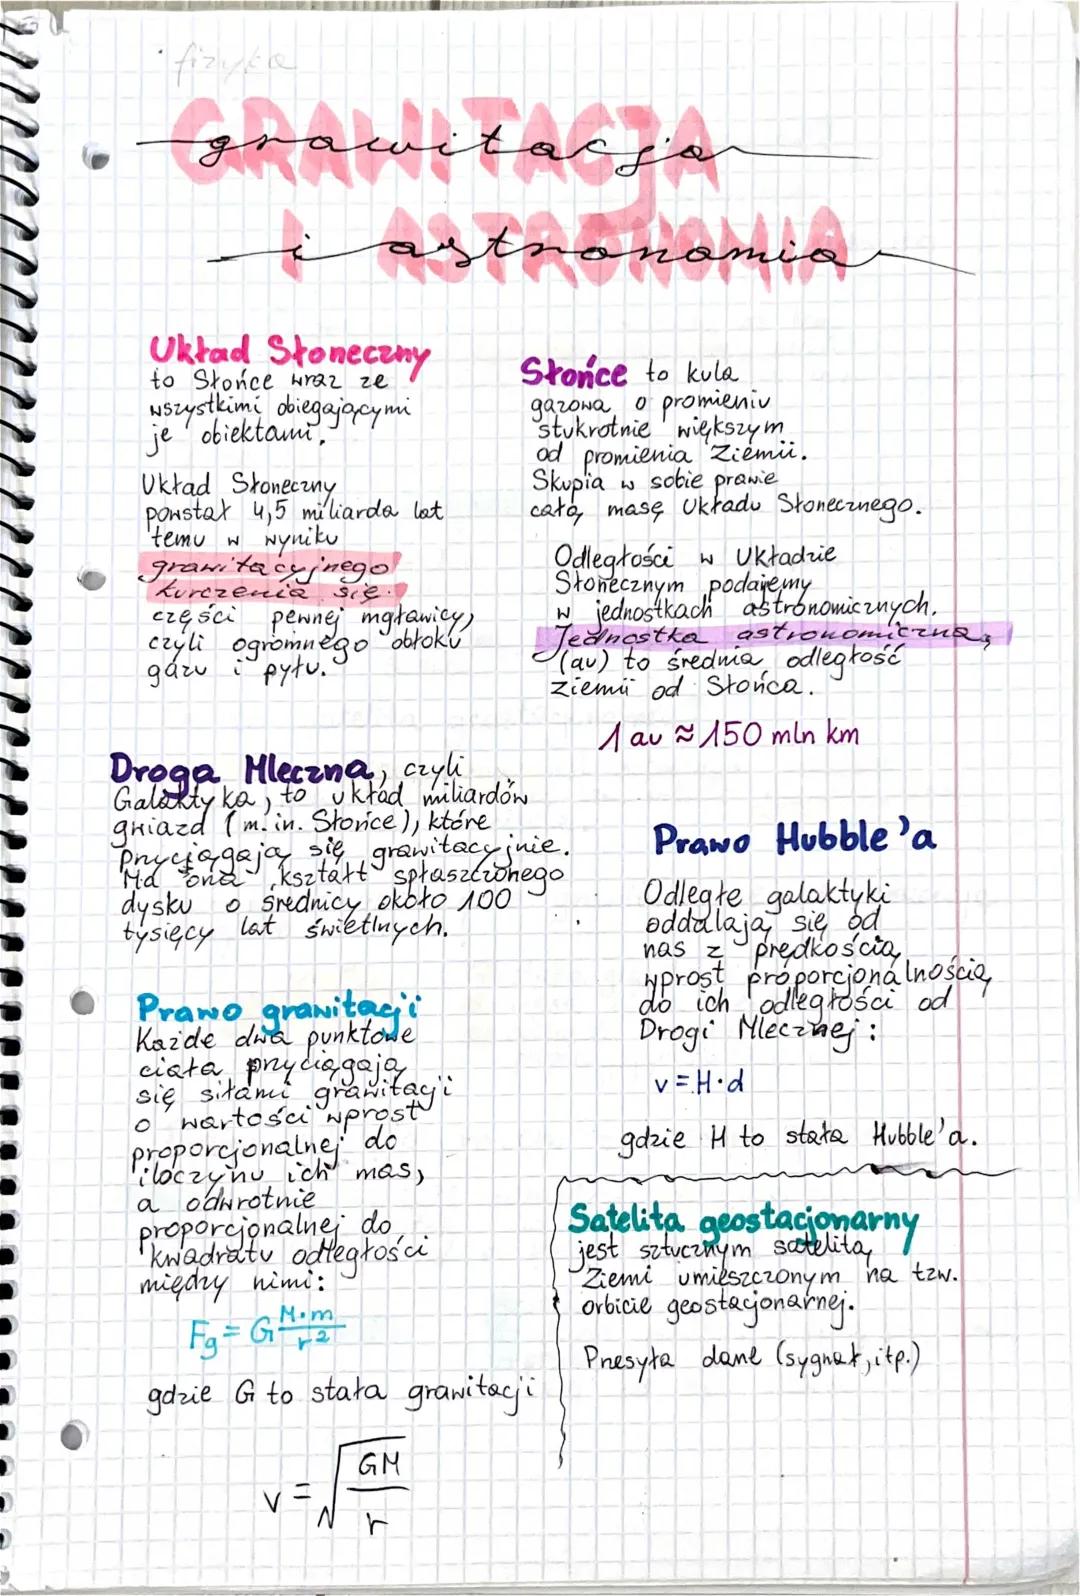 fizyka
GRAWITACJA
grawitacja
I ASTRONOMIA
i astronomia
Układ Słoneczny
to Słońce wraz ze
wszystkimi obiegającymi
je obiektami.
Układ Słoneczny
powstał 4,5 miliarda lat
temu w wyniku
grawitacyjnego
kurczenia się
części pewnej mgławicy,
czyli ogromnego obłoku
gazu i pyłu.
Słońce to kula
gazowa o promieniu
stukrotnie większym
od promienia Ziemii.
Skupia w sobie prawie
całą masę Układu Słonecznego.
Odległości w Układzie
Słonecznym podajemy
w jednostkach astronomicznych.
Jednostka astronomiczna
(au) to średnia odległość
ziemii od Słońca.
1 au ≈ 150 mln km
Droga Mleczna, czyli
Galaktyka, to układ miliardów
gwiazd (m.in. Słońce), które
przyciągają się grawitacyjnie.
Ma ona kształt spłaszczonego
dysku o średnicy około 100
tysięcy lat świetlnych.
Prawo Hubble'a
Odległe galaktyki
oddalają się od
nas z prędkością
wprost proporcjonalnością
do ich odległości od
Drogi Mlecznej:
v = H·d
gdzie H to stała Hubble'a.
Prawo grawitacji
Każde dwa punktowe
ciała przyciągają
się siłami grawitacji
o wartości wprost
proporcjonalnej do
iloczynu ich mas,
a odwrotnie
proporcjonalnej do
kwadratu odległości
między nimi:
Fg = G M·m / r²
gdzie G to stała grawitacji
v = √(GM / r)
Satelita geostacjonarny
jest sztucznym satelitą
Ziemi umieszczonym na tzw.
orbicie geostacjonarnej.
Przesyła dane (sygnał, itp.)